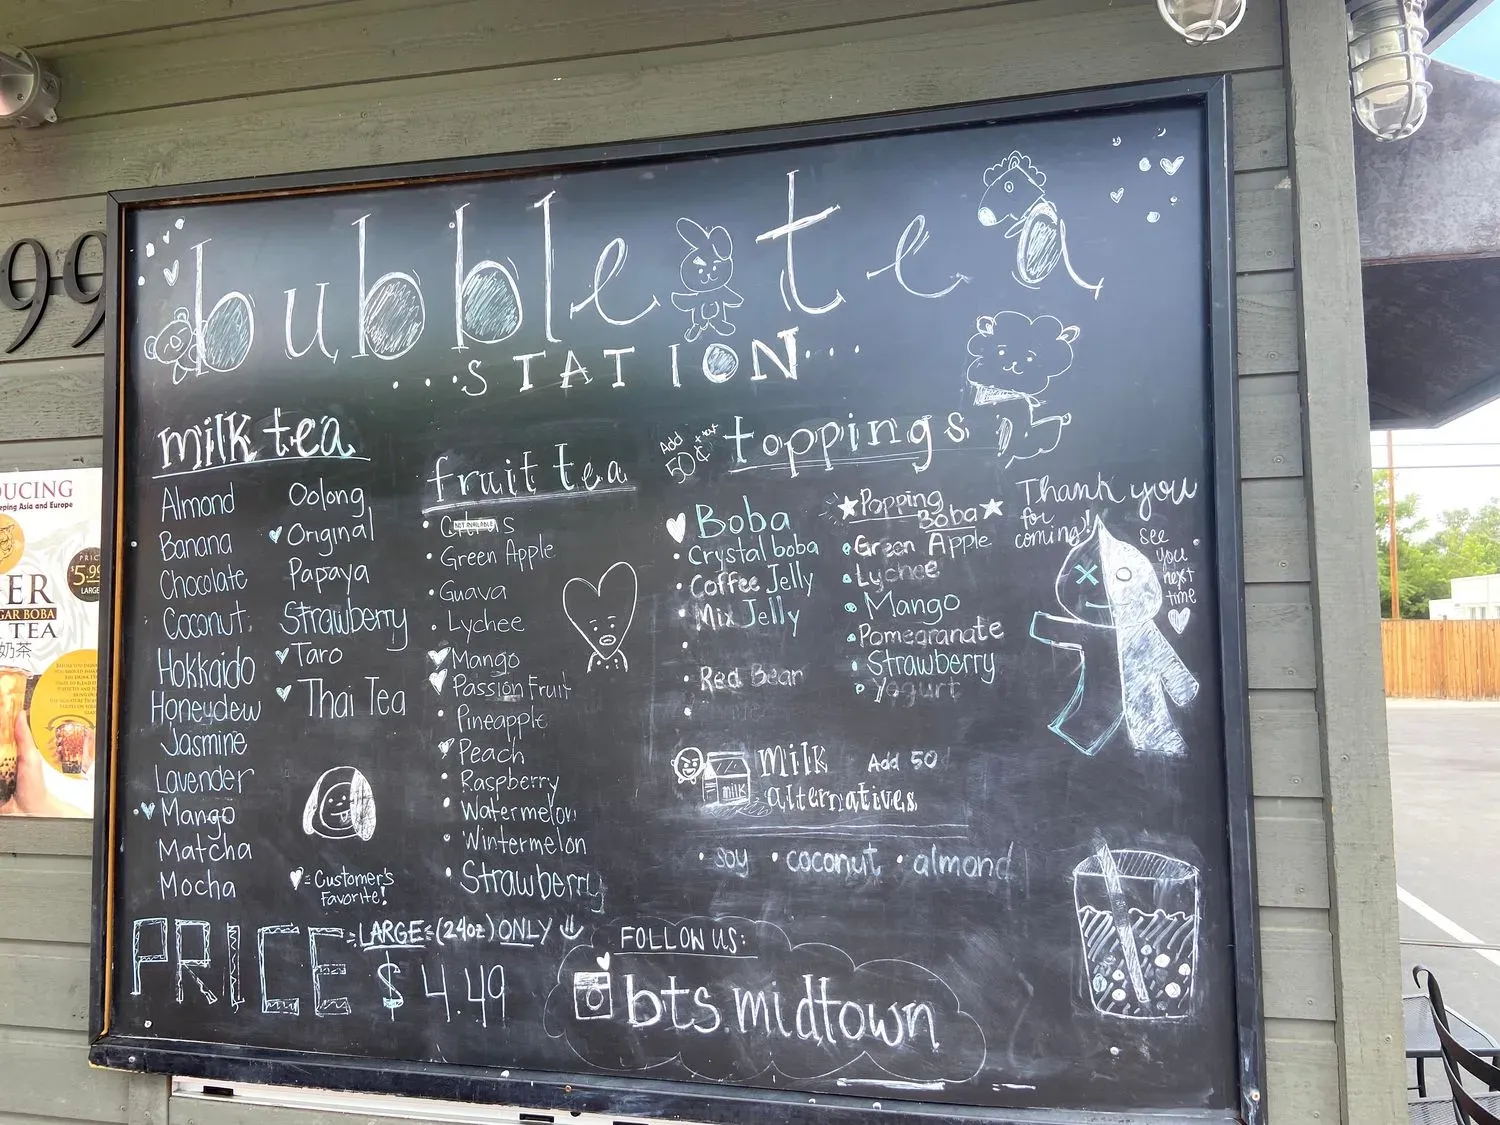 99
DUCING
eping Asia and Europe
PRICE
$5.99
LARGE
ER
GAR BOBA
TEA
奶茶
bubble tea
...STATION...
milk tea
Almond
Banana
Chocolate
Coconut
Hokkaido
Honeydew
Jasmine
Lavender
Mango
Matcha
Mocha
Oolong
Original
Papaya
Strawberry
Taro
Thai Tea
= Customer's
Favorite!
fruit tea
NOT AVAILABLE
• Green Apple
• Guava
• Lychee
Mango
Passion Fruit
• Pineapple
Peach
• Raspberry
• Watermelon
• Wintermelon
• Strawberry
Add
50¢
toppings
Boba
• Crystal boba
• Coffee Jelly
• Mix Jelly
• Red Bean
★Popping
Boba★
• Green Apple
• Lychee
• Mango
• Pomegranate
• Strawberry
• Yogurt
Thank you
for
coming!
see
you
next
time
milk
milk
alternatives
Add 50
• soy • coconut • almond
PRICE
LARGE (24oz) ONLY
$4.49
FOLLOW US:
bts.midtown